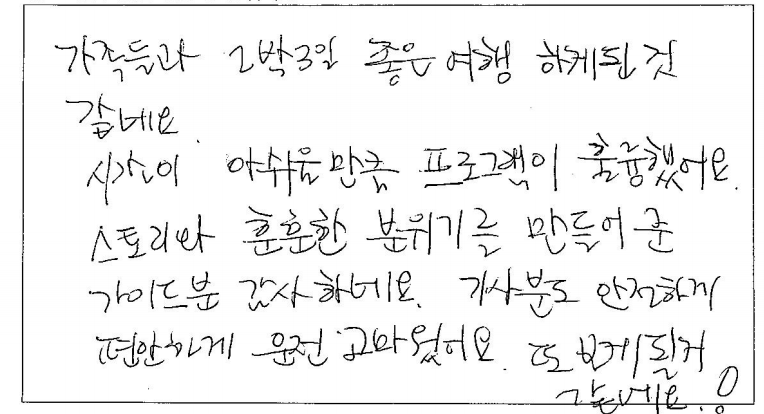 가족들과 2박3일 좋은 여행 하게된 것
같네요.
시간이 아쉬움만큼 프로그램이 훌륭했어요.
스토리와 훈훈한 분위기를 만들어 준
가이드분 감사하네요. 기사분도 안전하게
편안하게 운전 고마웠어요. 또 보게 될거
같네요.!